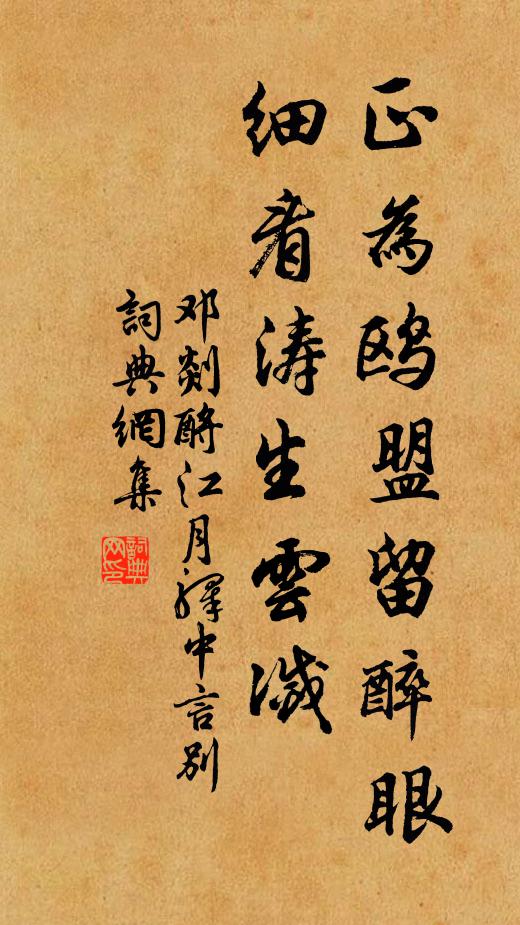 正為鷗盟留醉眼
細看濤生雲滅
邓剡酹江月驛中言别
詞典網集
詞典网印